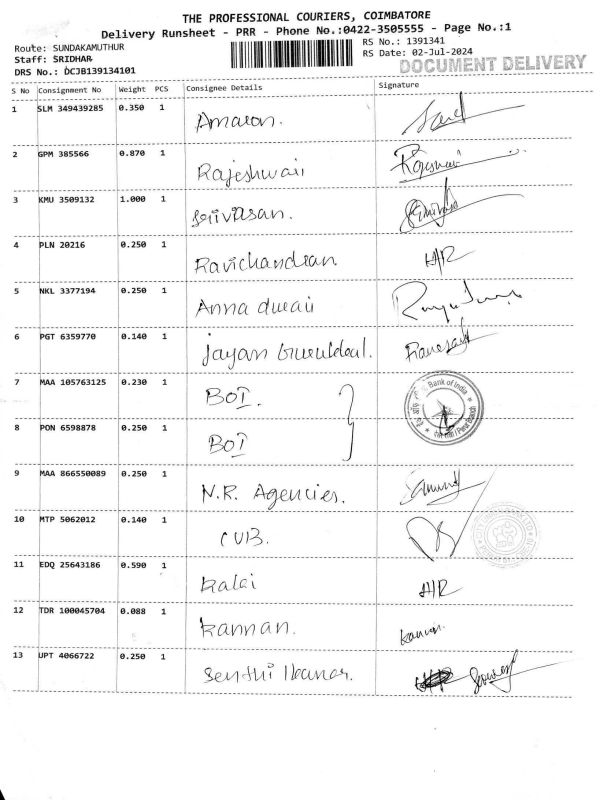 THE PROFESSIONAL COURIERS, COIMBATORE
Delivery Runsheet - PRR - Phone No.:0422-3505555 - Page No.:1
Route: SUNDAKAMUTHUR
RS No.: 1391341
Staff: SRIDHAR
RS Date: 02-Jul-2024
DRS No.: DCJB139134101
DOCUMENT DELIVERY
S No Consignment No Weight PCS Consignee Details Signature
1 SLM 349439285 0.350 1 Amazon.
2 GPM 385566 0.870 1 Rajeshwari Rajeswari
3 KMU 3509132 1.000 1 Srivasan.
4 PLN 20216 0.250 1 Ravichandran H/R
5 NKL 3377194 0.250 1 Anna durai
6 PGT 6359770 0.140 1 Jayan
7 MAA 105763125 0.230 1 BOI. Bank of India
8 PON 6598878 0.250 1 BOI
9 MAA 866550089 0.250 1 N.R. Agencies.
10 MTP 5062012 0.140 1 CUB.
11 EDQ 25643186 0.590 1 Kalai H/R
12 TDR 100045704 0.088 1 Kannan. Kannan.
13 UPT 4066722 0.250 1